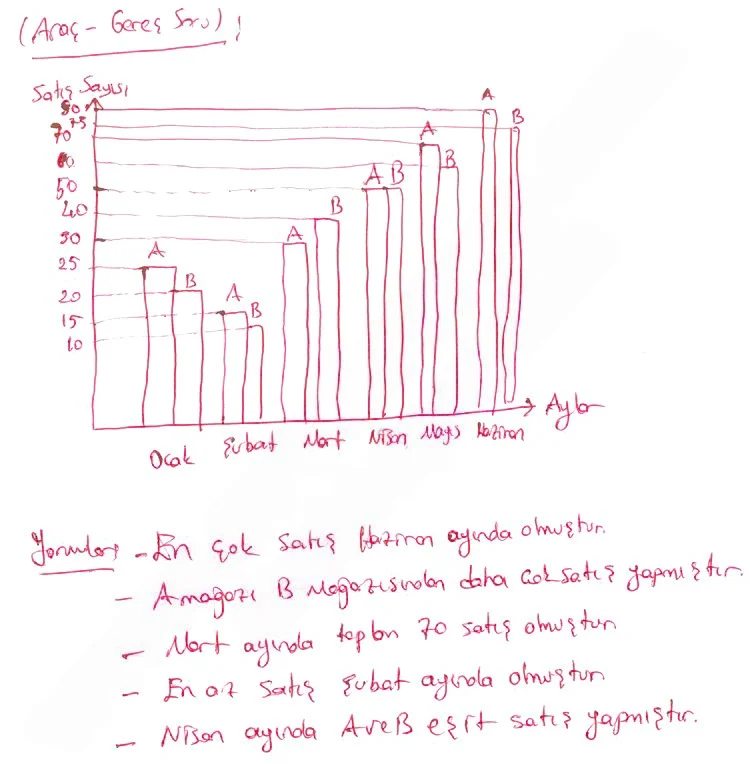 (Araç - Gereç Soru) ;
Satış Sayısı
80
75
70
60
50
40
30
25
20
15
10
A
B
A
B
A
B
A B
A
B
A
B
Aylar
Ocak Şubat Mart Nisan Mayıs Haziran
Yorumlar; - En çok satış Haziran ayında olmuştur.
- A mağazı B Mağazısından daha çok satış yapmıştır.
- Mart ayında toplan 70 satış olmuştur
- En az satış Şubat ayında olmuştur
- Nisan ayında A ve B eşit satış yapmıştır.